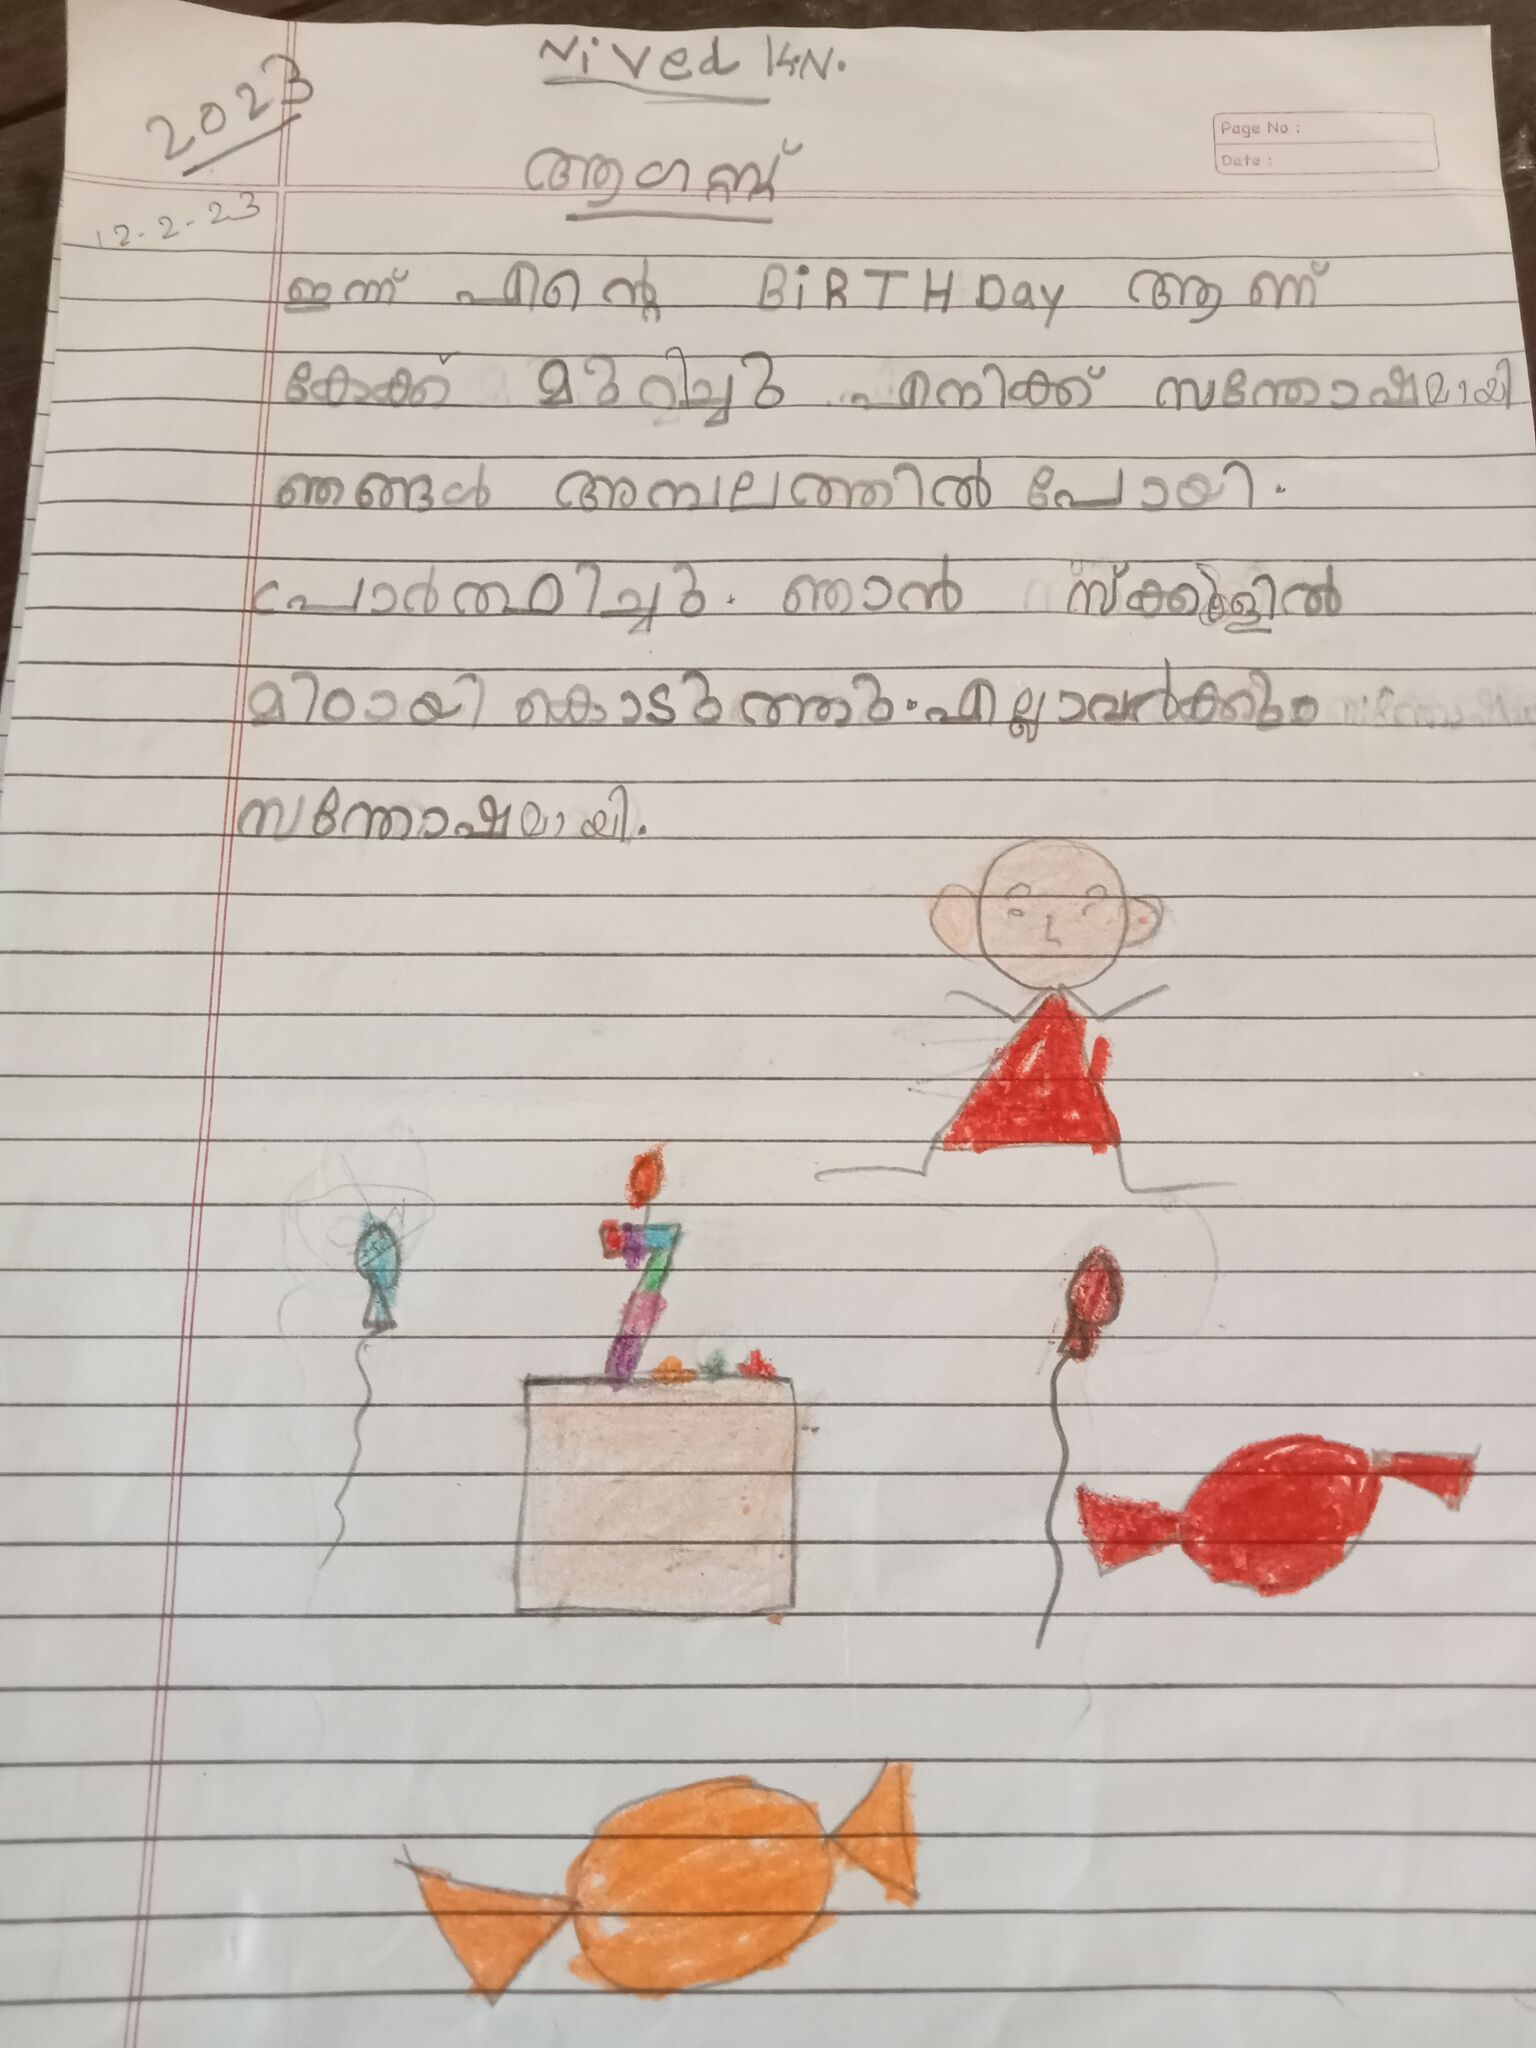 Nived K.N.
2023
Page No :
Date :
ആഗസ്റ്റ്
12-2-23
ഇന്ന് എന്റെ BiRTHDay ആണ്
കേക്ക് മുറിച്ചു എനിക്ക് സന്തോഷമായി
ഞങ്ങൾ അമ്പലത്തിൽ പോയി.
പ്രാർത്ഥിച്ചു. ഞാൻ സ്ക്കൂളിൽ
മിഠായി കൊടുത്തു. എല്ലാവർക്കും
സന്തോഷമായി.